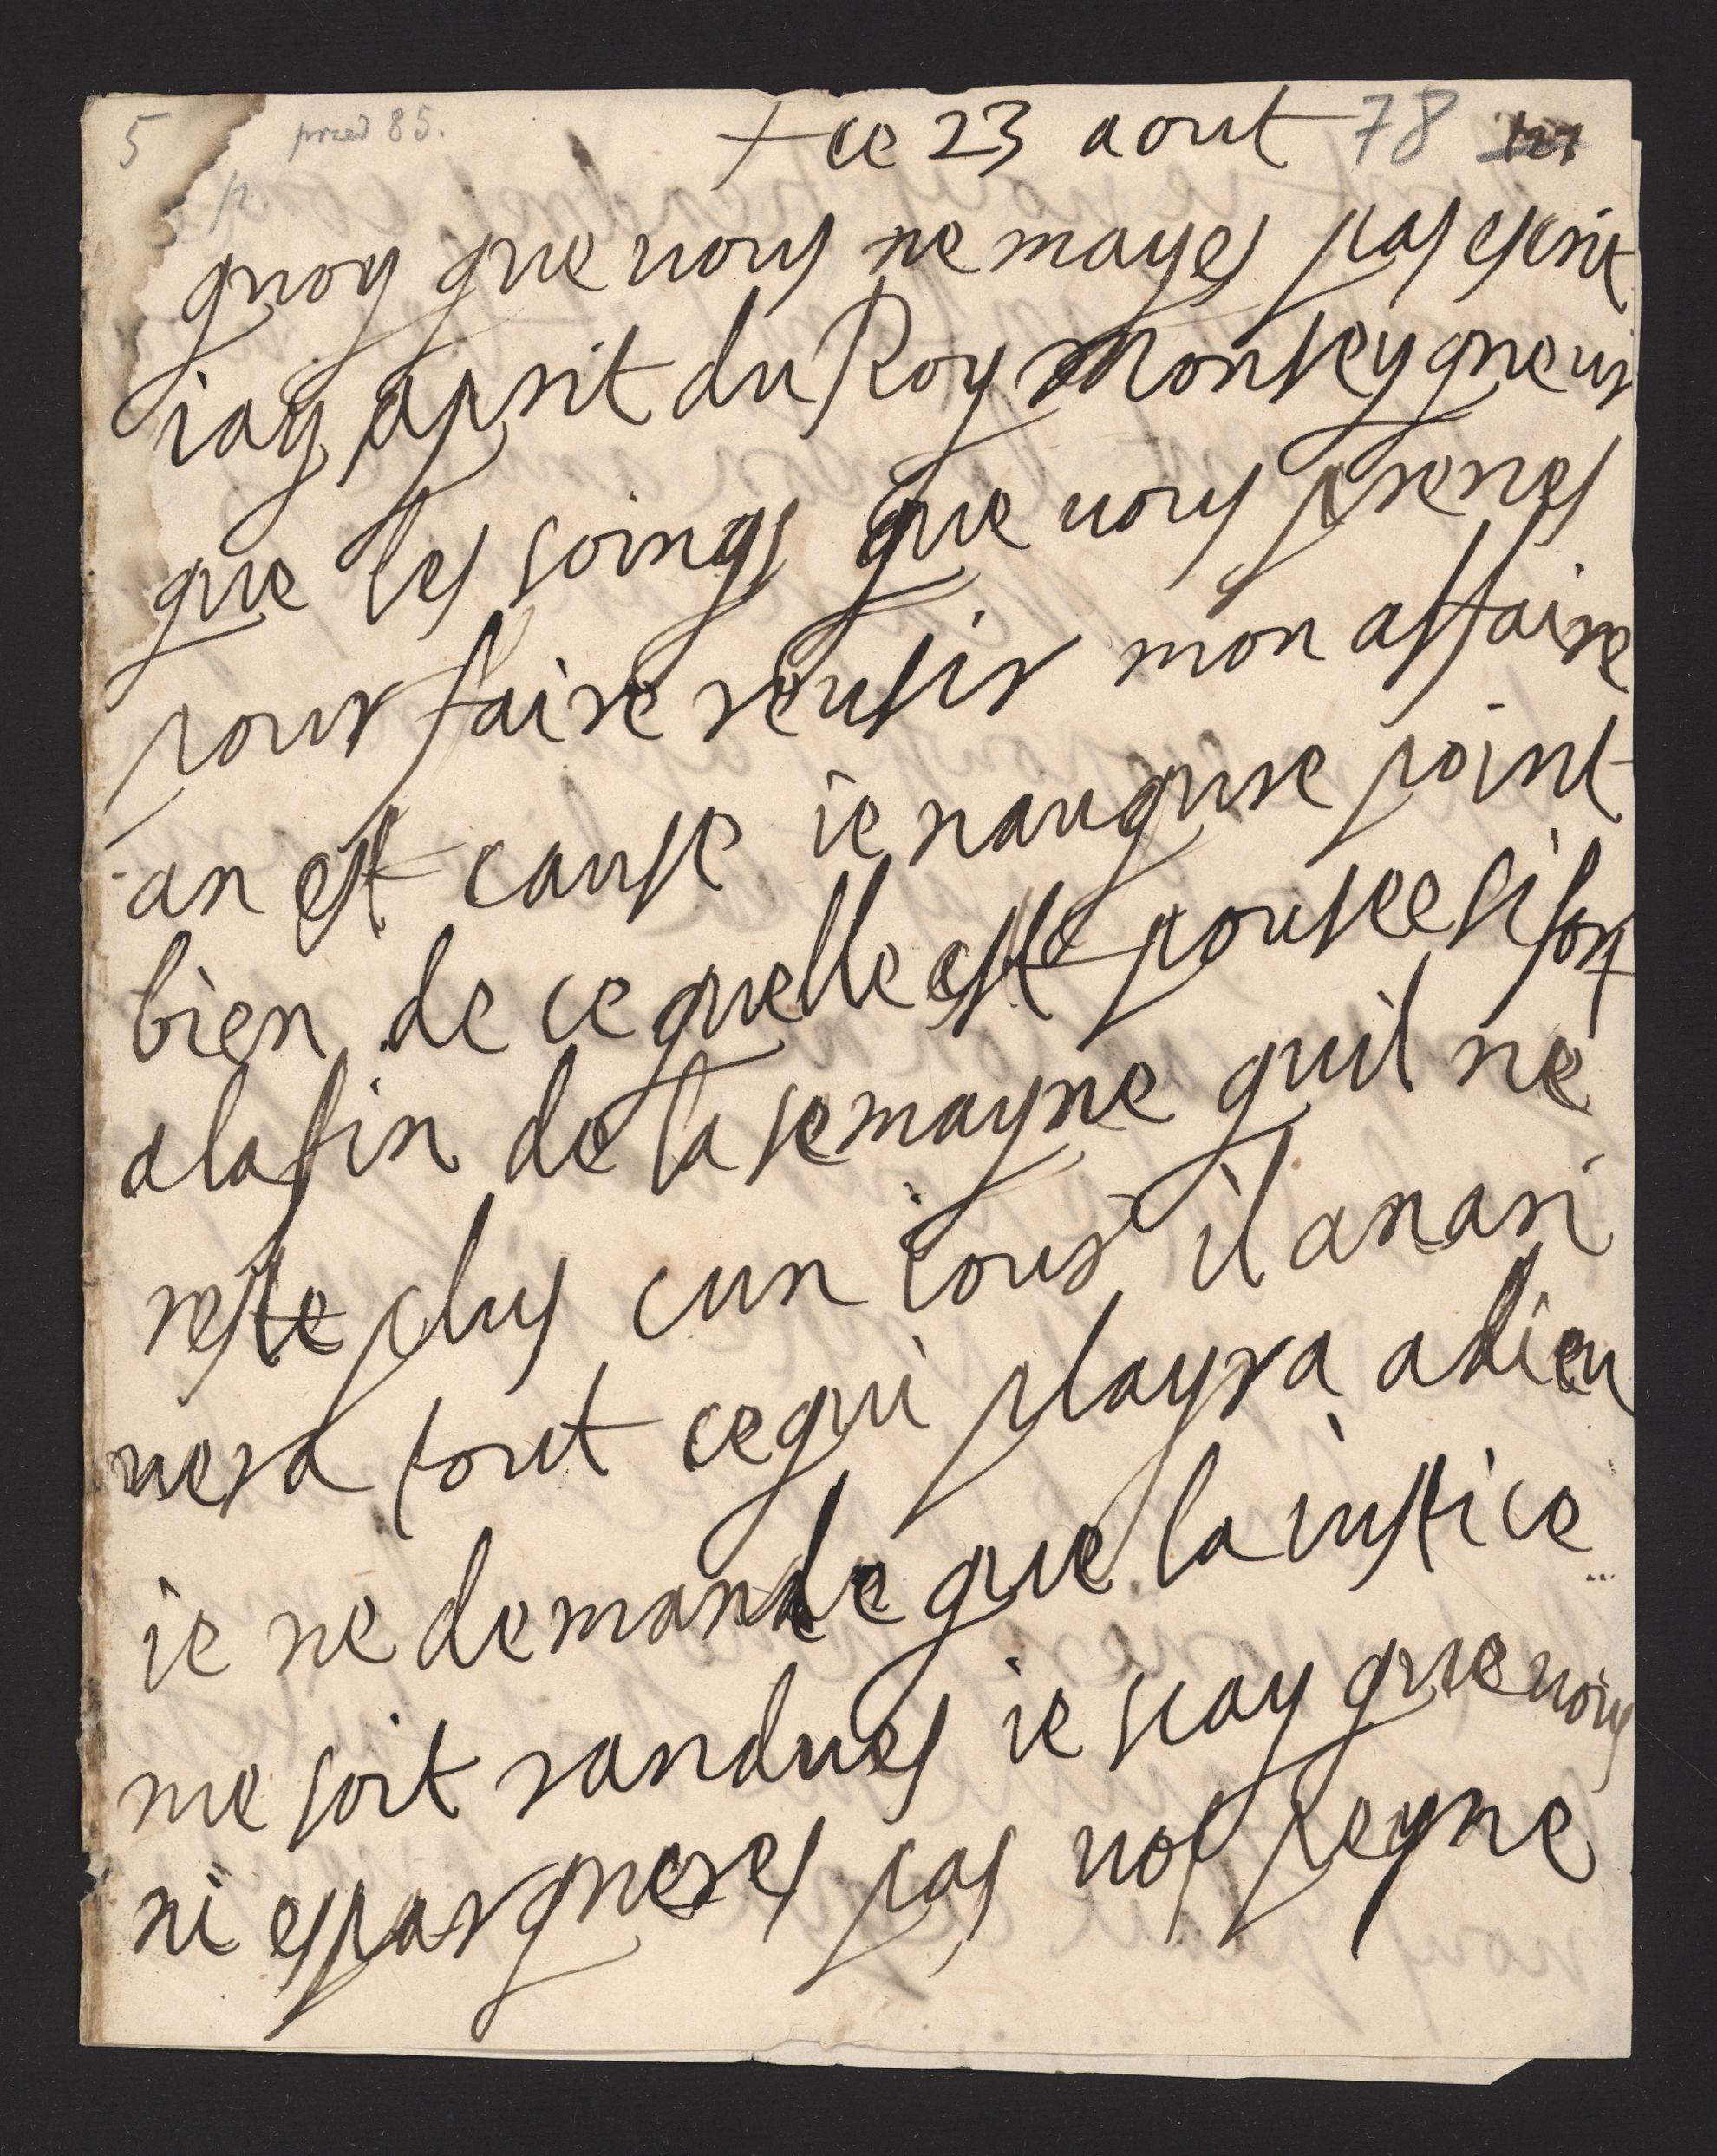 5 przed 85. + ce 23 aout 78 121
p.
quoy que uous ne mayes pas escrit
iay aprit du Roy Monseygneur
que les soings que uous prenes
pour faire reusir mon affaire
an est cause ie naugure point
bien de ce quelle este pousee si fort
a la fin de la semayne quil ne
reste plus cun iour il anari
uera tout ce qui playra a dieu
ie ne demande que la iustice
me soit randues ie scay que uous
ni espargneres pas uos peyne